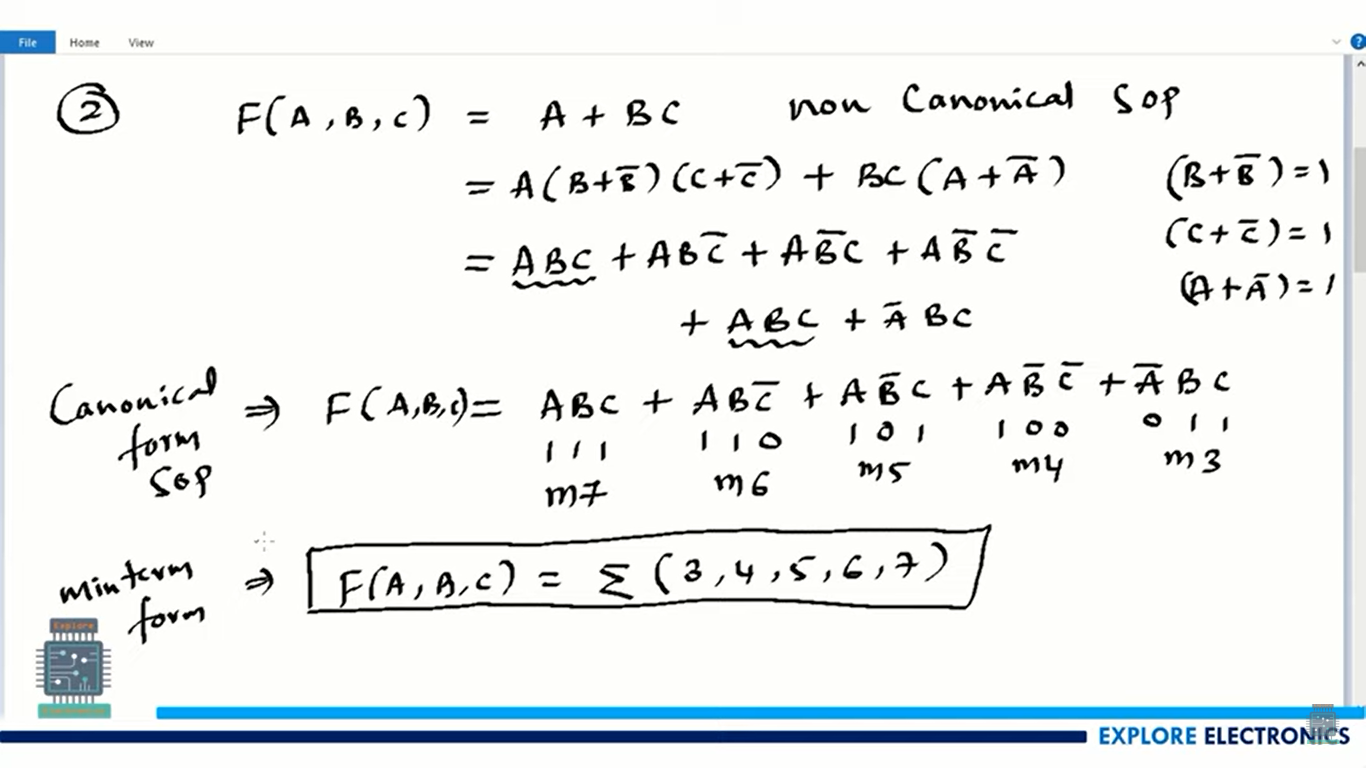 File Home View
② F(A,B,C) = A + BC non Canonical SOP
= A(B+B̅)(C+C̅) + BC(A+A̅) (B+B̅)=1
= ABC + ABC̅ + AB̅C + AB̅C̅ (C+C̅)=1
+ ABC + A̅BC (A+A̅)=1
Canonical form SOP ⇒ F(A,B,C)= ABC + ABC̅ + AB̅C + AB̅C̅ + A̅BC
111 110 101 100 011
m7 m6 m5 m4 m3
minterm form ⇒ F(A,B,C) = Σ(3,4,5,6,7)
Explore
EXPLORE ELECTRONICS